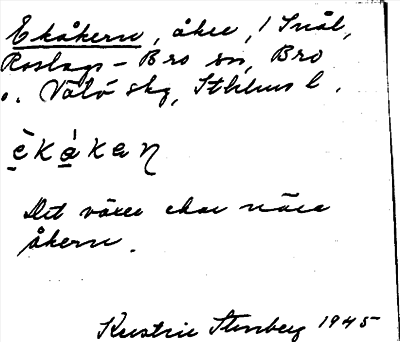 Ekåkern, åker, 1 Snål,
Roslags-Bro sn, Bro
o. Vätö skg, Sthlms l.
è̱kà̱kaɳ
Det växer ekar nära
åkern.
Kerstin Stenberg 1945